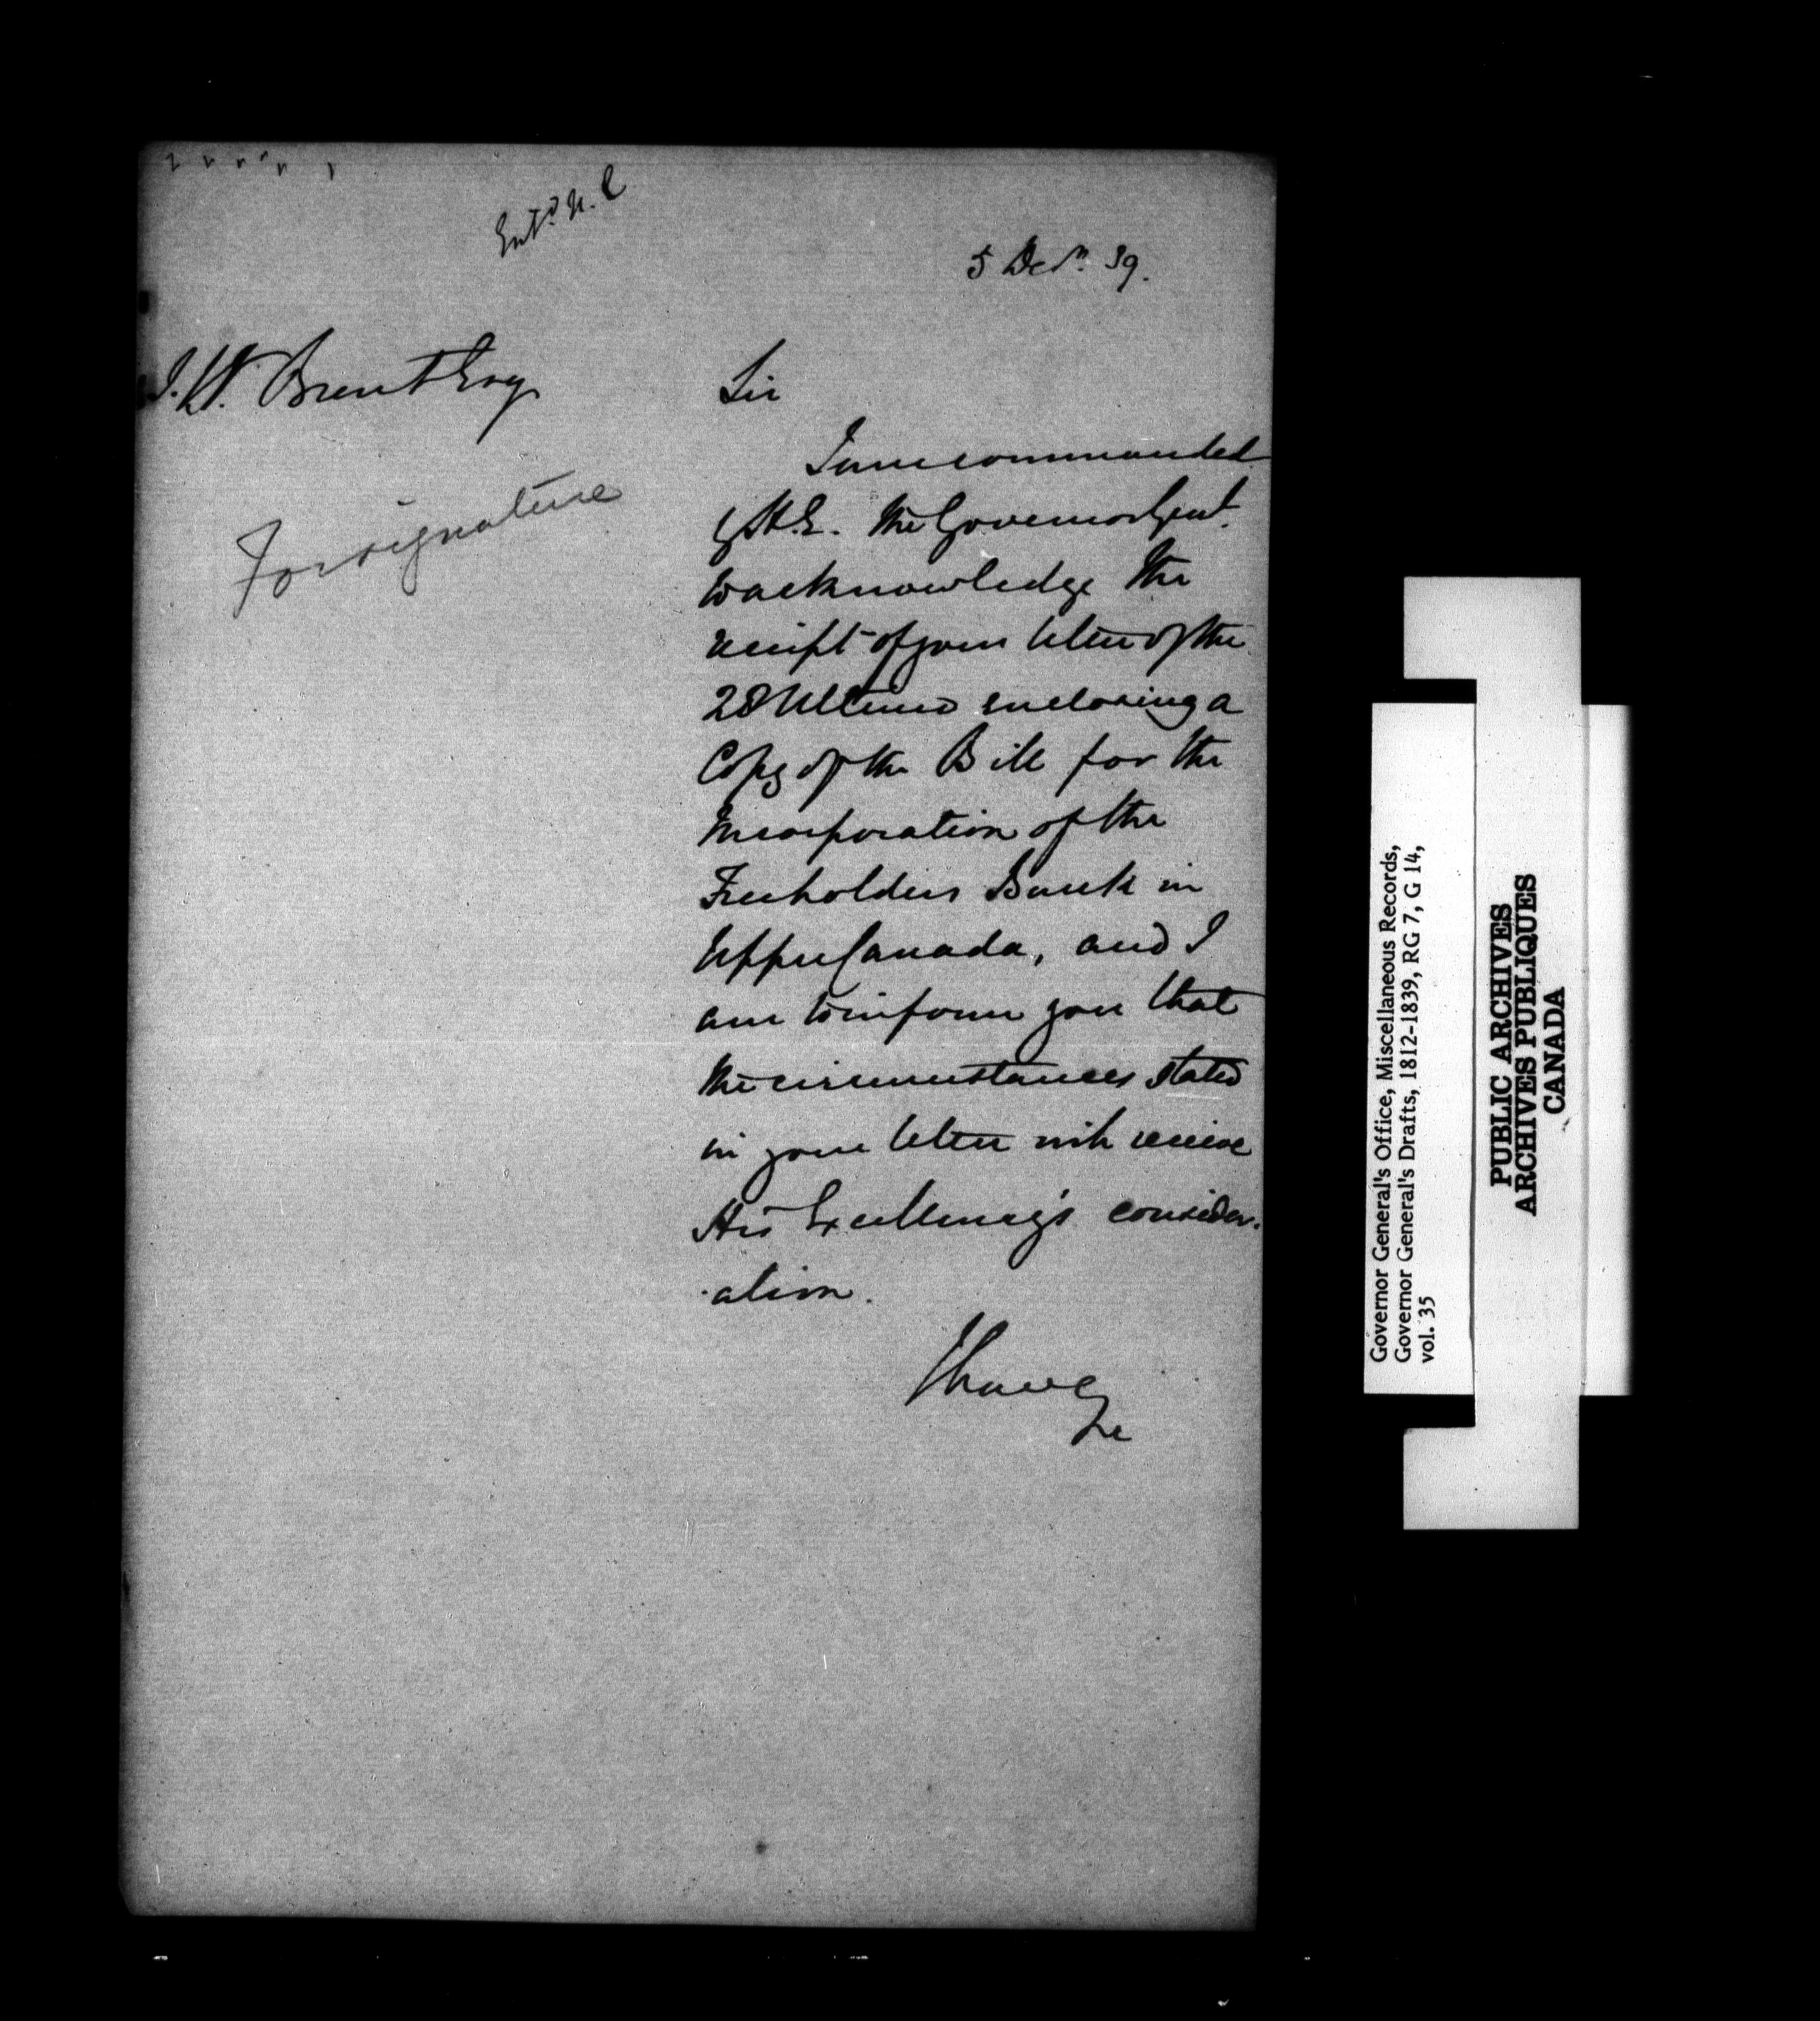 Entd. U.C
5 Decr. 39.
J.W. Brent Esq
Sir
For signature
I am commanded
by H.E. the Governor Genl.
to acknowledge the
receipt of your letter of the
28 Ultimo enclosing a
Copy of the Bill for the
Incorporation of the
Freeholders Bank in
Upper Canada, and I
am to inform you that
the circumstances stated
in your letter will receive
His Excellency's consider-
-ation.
I have &c
Governor General's Office, Miscellaneous Records,
Governor General's Drafts, 1812-1839, RG 7, G 14,
vol. 35
PUBLIC ARCHIVES
ARCHIVES PUBLIQUES
CANADA